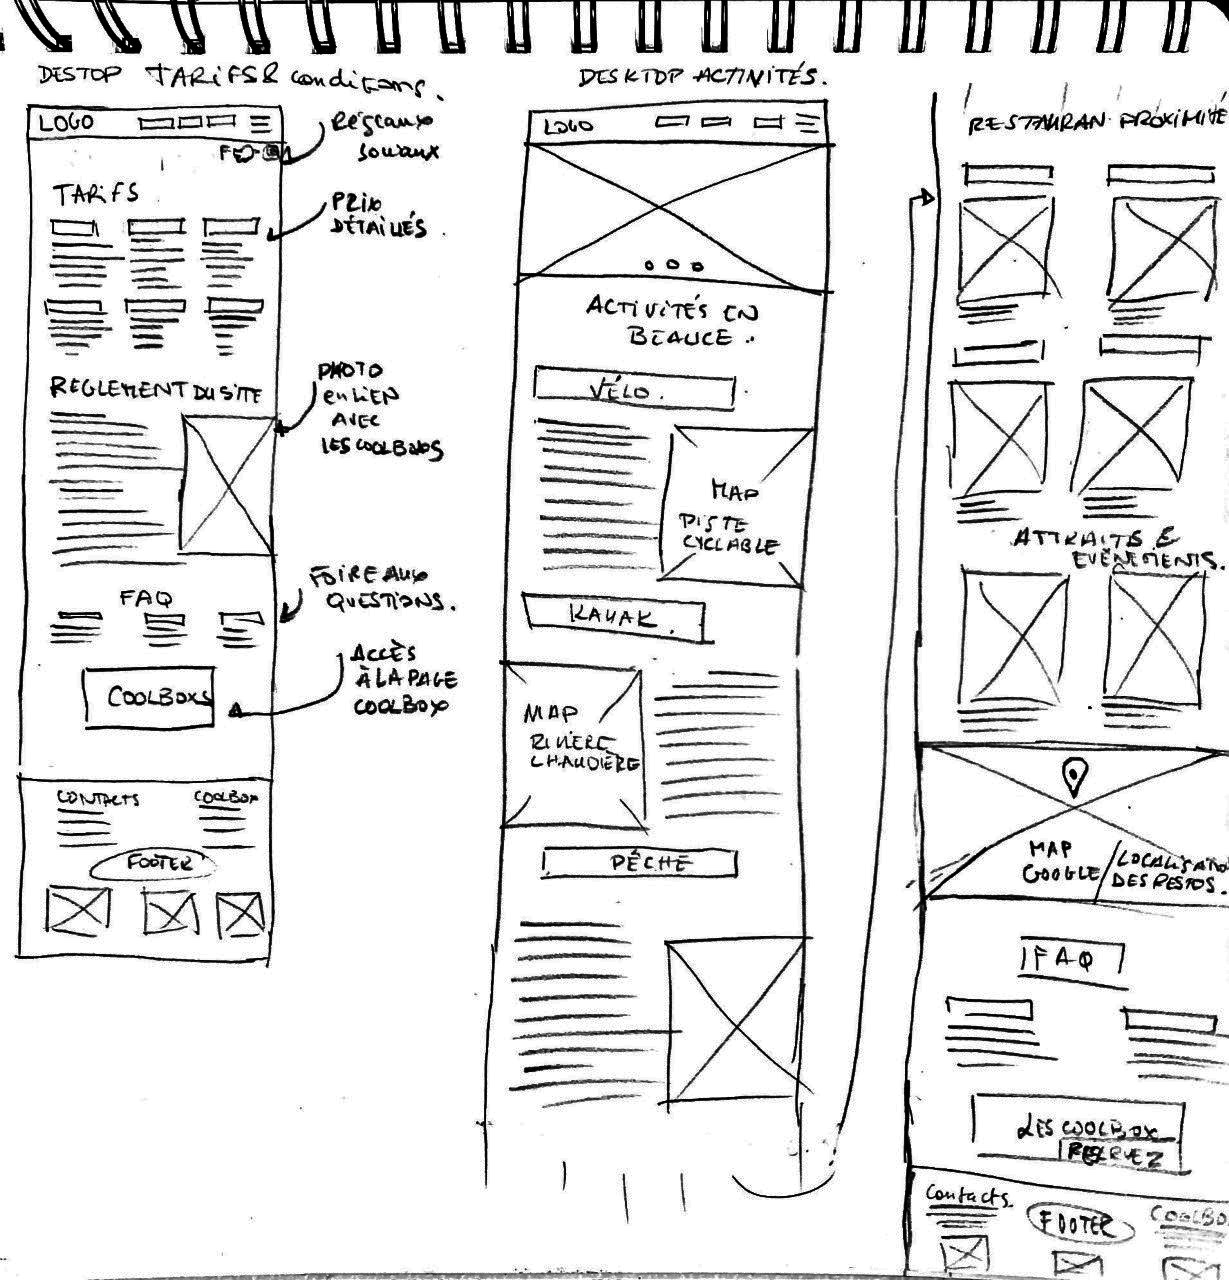 DESTOP TARIFS & conditions.
LOGO
Réseaux
sociaux
TARIFS
PRIX
DÉTAILLÉS
REGLEMENT DU SITE
PHOTO
en LIEN
AVEC
LES COOLBOXS
FAQ
FOIRE AUX
QUESTIONS.
COOLBOXS
ACCÈS
À LA PAGE
COOLBOX
CONTACTS
COOLBOX
FOOTER
DESKTOP ACTIVITÉS.
LOGO
ACTIVITÉS EN
BEAUCE.
VÉLO.
MAP
PISTE
CYCLABLE
KAYAK.
MAP
RIVIÈRE
CHAUDIÈRE
PÊCHE
RESTAURAN PROXIMITÉ
ATTRAITS &
EVÈNEMENTS.
MAP
GOOGLE / LOCALISATIO
DES RESTOS.
FAQ
LES COOLBOX
RESERVEZ
Contacts.
FOOTER
COOLBO